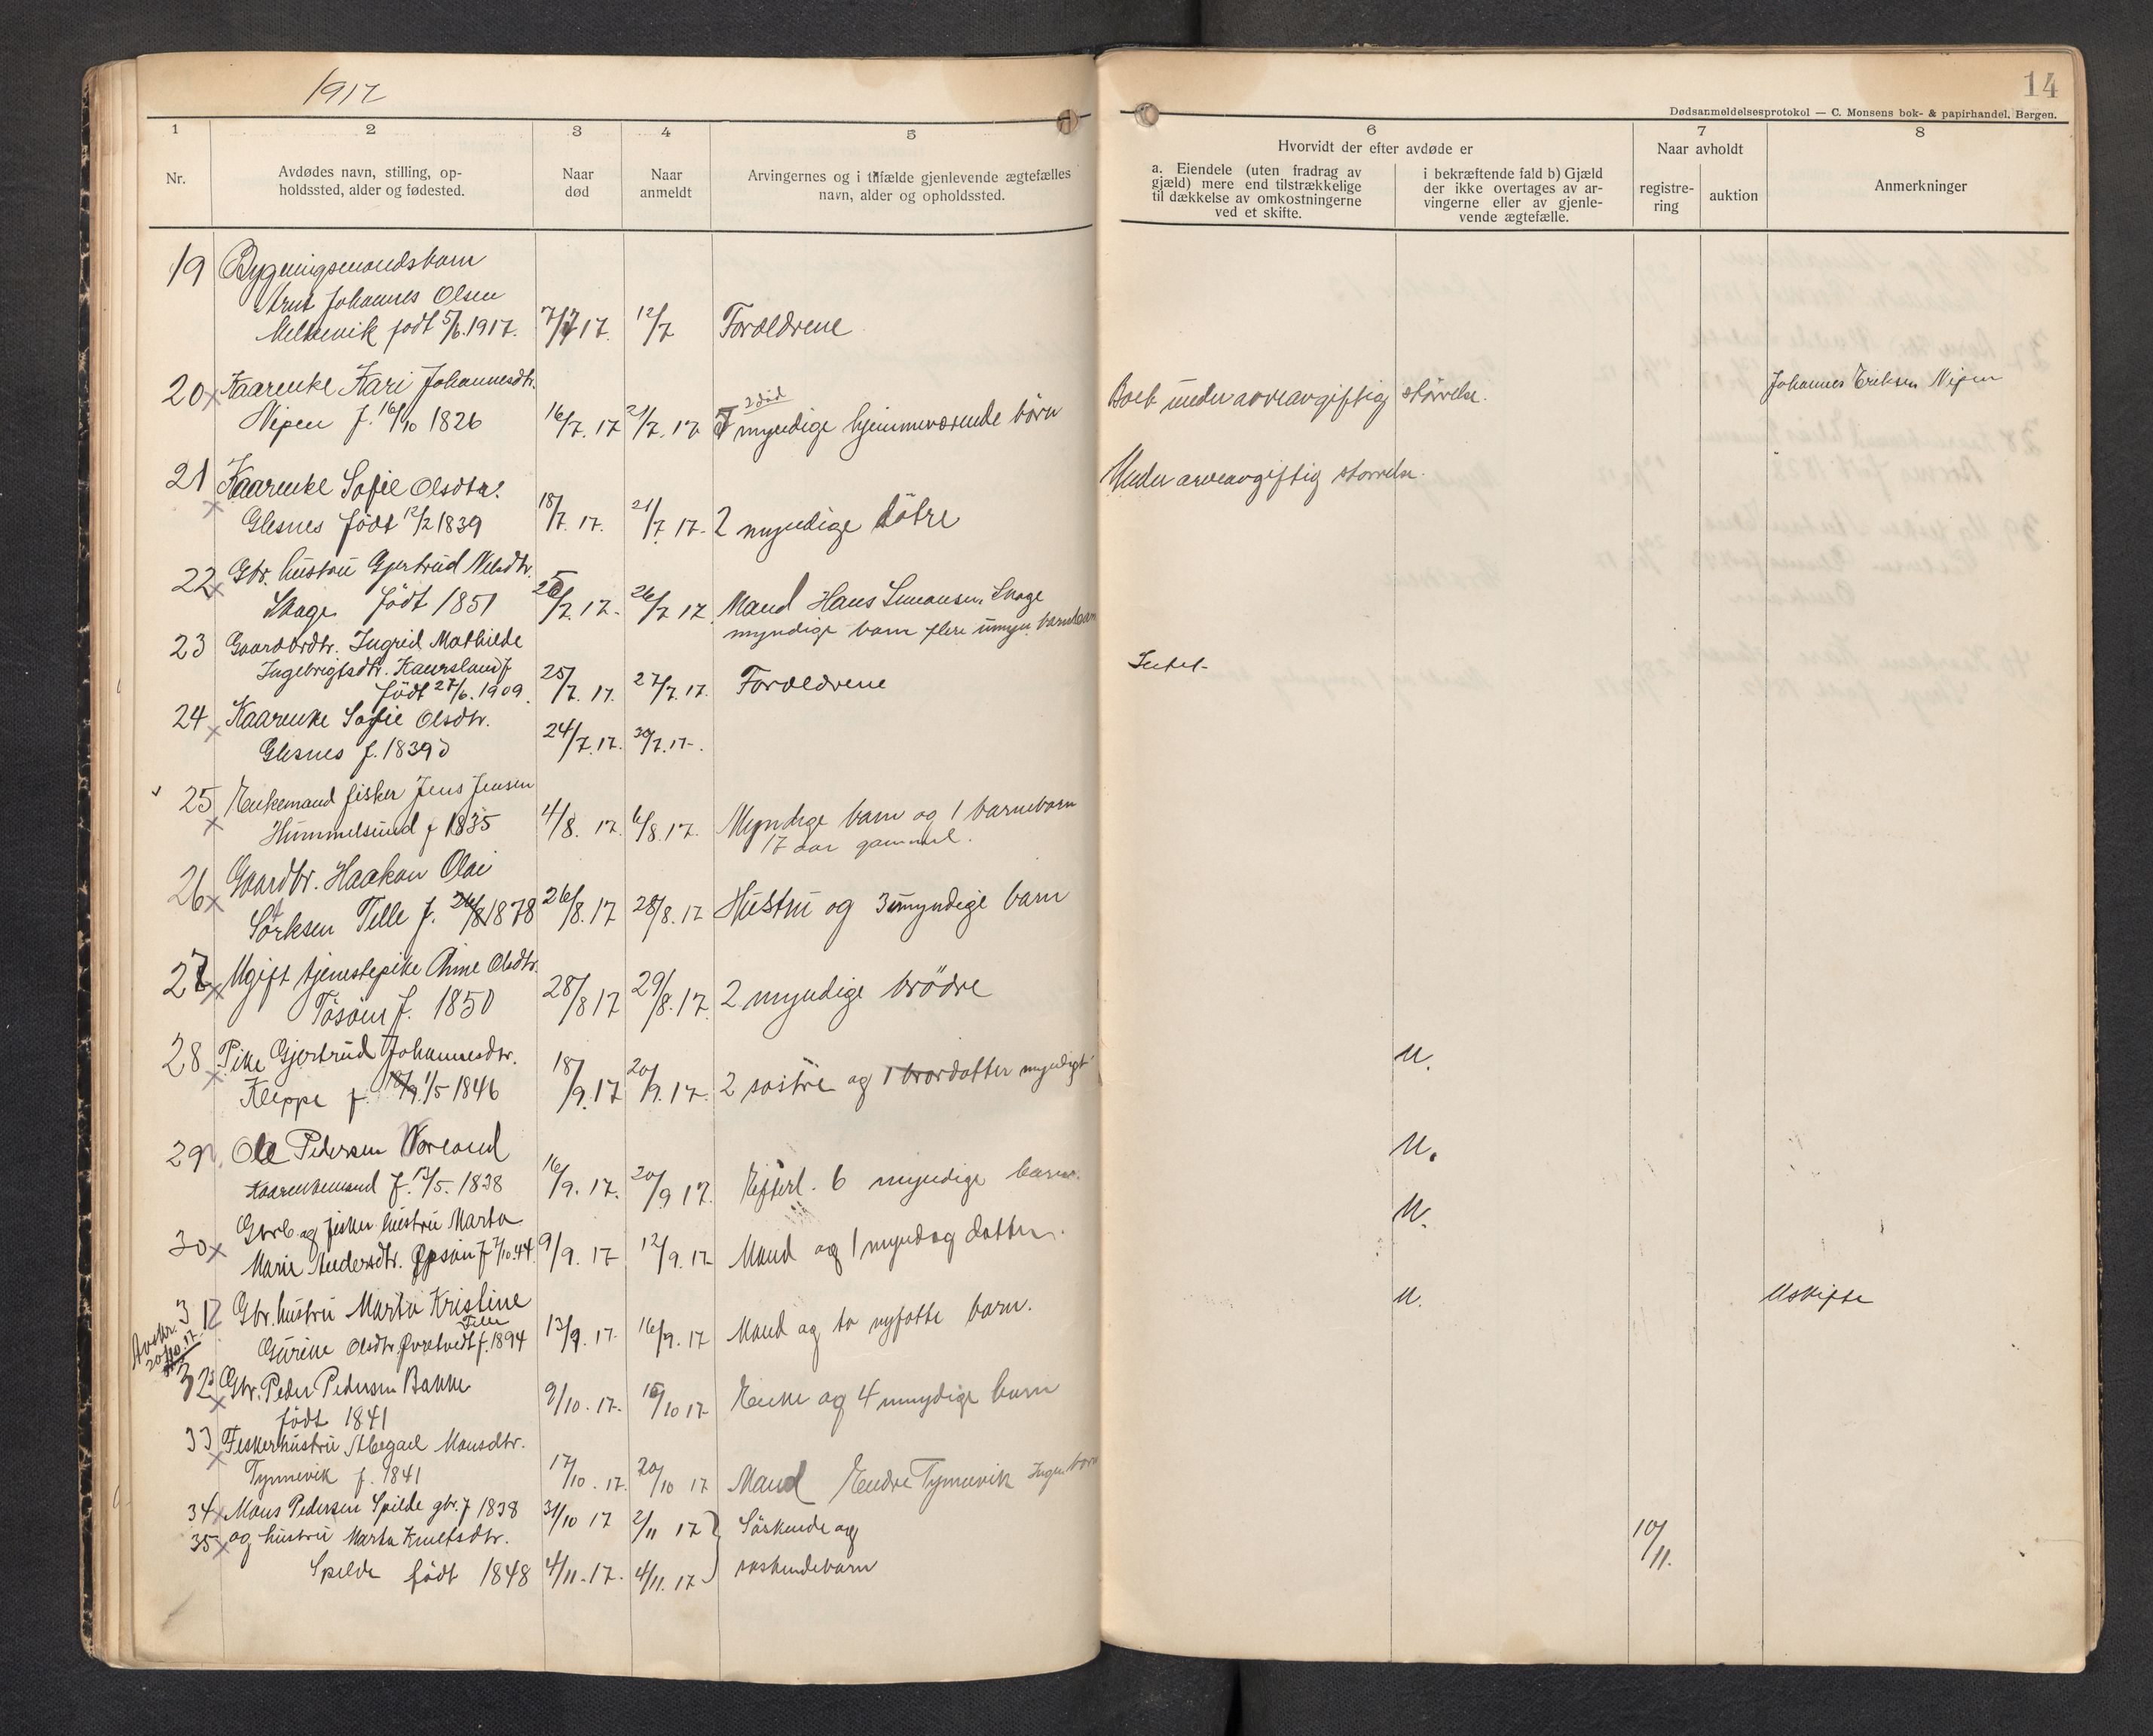 1917
1
2
3
4
5
Nr.
Avdødes navn, stilling, op-
holdssted, alder og fødested.
Naar
død
Naar
anmeldt
Arvingernes og i tilfælde gjenlevende ægtefælles
navn, alder og opholdssted.
19 Bygningsmandsbarn
Arne Johannes Olsen
Melkevik født 5/6. 1917. 7/7 17. 12/7 Forældrene
20 x Kaarenke Kari Johannesdtr.
2 död
Nipen f. 16/10 1826 16/7. 17 21/7. 17 myndige hjemmeværende börn
21 x Kaarenke Sofie Olsdtr.
Glesnes födt 12/2 1839 18/7. 17. 21/7 17. 2 myndige dötre
22 x Gbr. hustru Gjertrud Nilsdtr.
Skage födt 1851 25/7. 17. 26/7 17. Mand Hans Simonsen Skage
myndige barn flere umyn. barnebarn
23 Gaardbrdtr. Ingrid Mathilde
Ingebrigtsdtr. Kaursland f
födt 27/6. 1909. 25/7. 17. 27/7. 17. Forældrene
24 x Kaarenke Sofie Olsdtr.
Glesnes f. 1839 24/7. 17. 30/7. 17.
25 x Enkemand fisker Jens Jensen
Hummelsund f 1835 4/8. 17. 6/8. 17. Myndige barn og 1 barnebarn
17 aar gammel.
26 x Gaardbr. Haakon Olai
Sörksen Telle f. 1878 26/8. 17 28/8. 17 Hustru og 3 umyndige barn
27 x Ugift tjenestepike Anne Olsdtr.
Tösöen f. 1850 28/8 17 29/8. 17. 2 myndige brödre
28 x Pike Gjertrud Johannesdtr.
Kleppe f. 18/9 1/5 1846 18/9. 17 20/9. 17. 2 söstre og 1 brordatter myndigt
29 Ole Pedersen Vorland
Kaarenkemand f. 13/5. 1838 16/9. 17. 20/9 17. Efterl. 6 myndige barn.
30 x Gbrb. og fisker hustru Marta
Marie Andersdtr. f 7/10. 44. 9/9. 17 12/9. 17 Mand og 1 myndog datter.
31 Gbr. hustru Marta Kristine
Telle
Gurine Olsdtr. Övretvedt f. 1894 13/9. 17. 16/9. 17 Mand og to nyfötte barn.
Avskr.
20/10. 17.
32 x Gbr. Peder Pedersen Bakke
födt 1841 9/10. 17. 15/10 17 Enke og 4 myndige barn
33 x Fiskerhustru Abegael Monsdtr.
Tyrnevik f. 1841 17/10. 17. 20/10 17 Mand Endre Tyrnevik Ingen barn
34 x Mons Pedersen Spilde gbr. f 1838 31/10 17 2/11 17 } Söskende og
35 x og hustru Marta Knutsdtr.
Spilde födt 1848 4/11. 17. 4/11. 17 söskendebarn
14
Dødsanmeldelsesprotokol — C. Monsens bok- & papirhandel, Bergen.
6
7
8
Hvorvidt der efter avdøde er
a. Eiendele (uten fradrag av
gjæld) mere end tilstrækkelige
til dækkelse av omkostningerne
ved et skifte.
i bekræftende fald b) Gjæld
der ikke overtages av ar-
vingerne eller av gjenle-
vende ægtefælle.
Naar avholdt
registre-
ring
auktion
Anmerkninger
Boet under arveavgiftig störrelse. Johannes Eriksen Nipen
Under arveavgiftig störrelse.
Intet
U.
U.
U.
U. Uskifte
10/11.